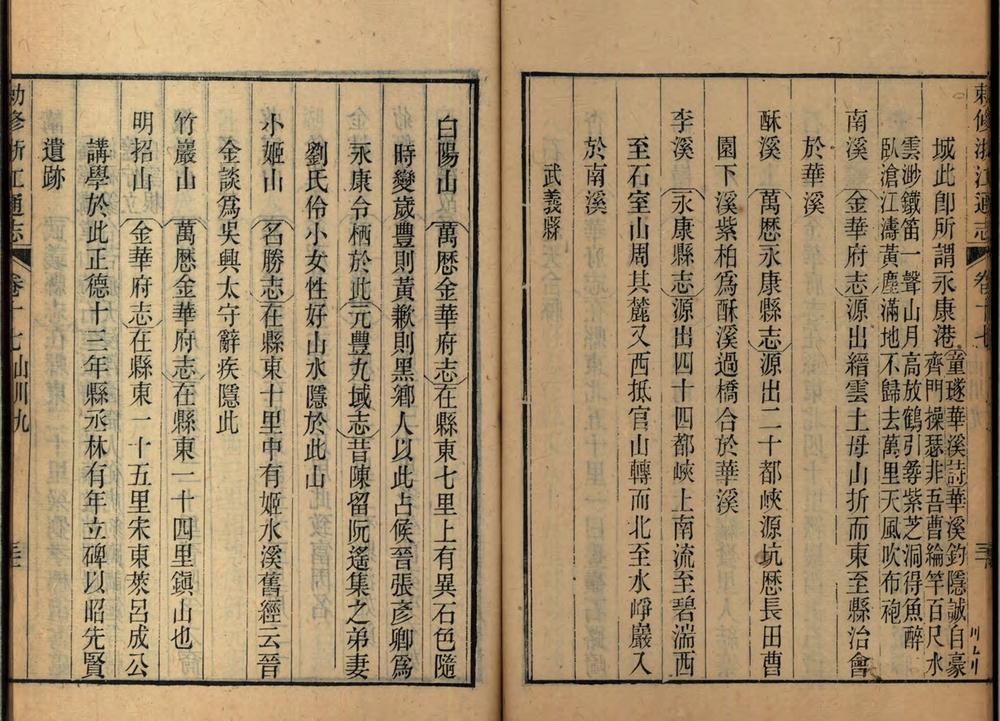 敕修浙江通志 卷十七 山川九
城此卽所謂永康港 童𤩽華溪詩華溪釣隱誠自豪
齊門操瑟非吾曹綸竿百尺水
雲渺鐵笛一聲山月高放鶴引㝷紫芝洞得魚醉
臥滄江濤黃塵滿地不歸去萬里天風吹布砲
南溪 金華府志源出縉雲土母山折而東至縣治會
於華溪
酥溪 萬歷永康縣志源出二十都峽源坑歷長田曹
園下溪紫柏爲酥溪過橋合於華溪
李溪 永康縣志源出四十四都峽上南流至碧湍西
至石室山周其麓又西抵官山轉而北至水崢巖入
於南溪
武義縣
白陽山 萬歷金華府志在縣東七里上有異石色隨
時變歲豐則黃歉則黑鄉人以此占候晉張彥卿爲
永康令栖於此元豐九域志昔陳留阮遙集之弟妻
劉氏伶小女性好山水隱於此山
小姬山 名勝志在縣東十里中有姬水溪舊經云晉
金談爲吳興太守辭疾隱此
竹巖山 萬歷金華府志在縣東一十四里鎭山也
明招山 金華府志在縣東一十五里宋東萊呂成公
講學於此正德十三年縣丞林有年立碑以昭先賢
遺跡
敕修浙江通志 卷十七 山川九